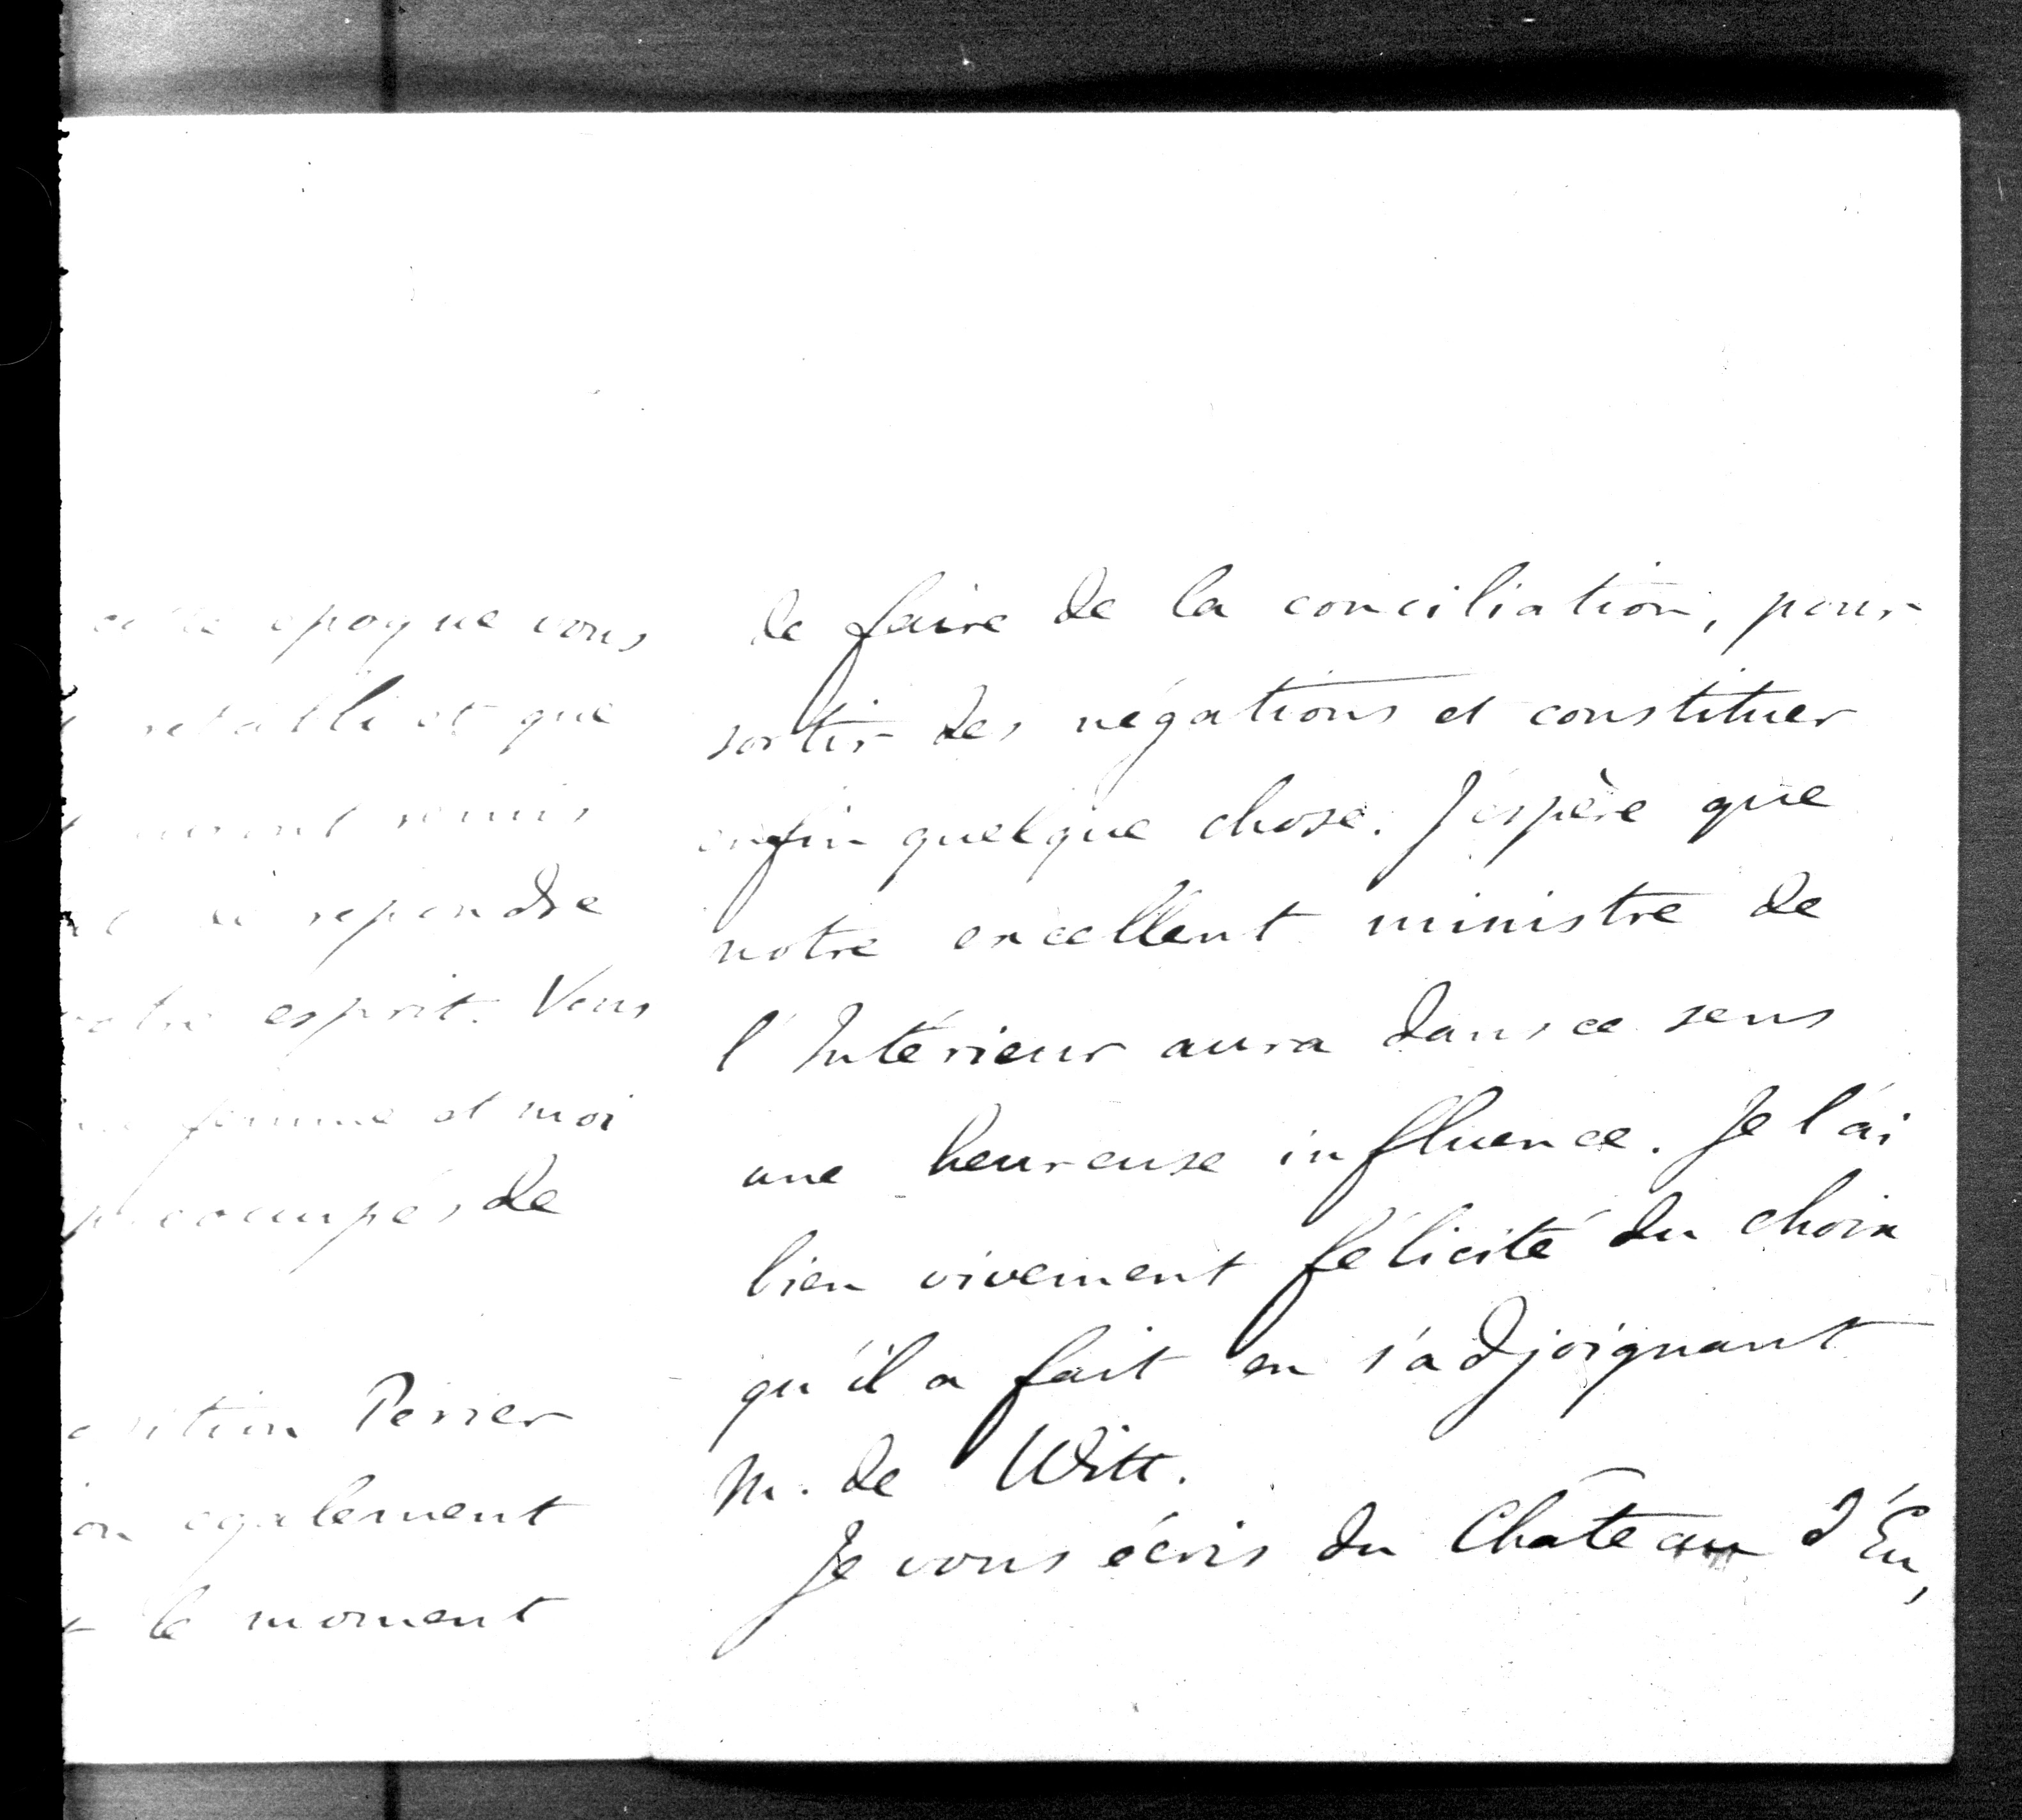 époque vous
et que
remis
répondre
esprit. Vous
femme et moi
de
Perier
également
le moment
de faire de la conciliation, pour
sortir des négations et constituer
enfin quelque chose. J'espère que
notre excellent ministre de
l'Intérieur aura dans ce sens
une heureuse influence. Je l'ai
bien vivement félicité du choix
qu'il a fait en s'adjoignant
M. de Witt.
Je vous écris du Château d'Eu,